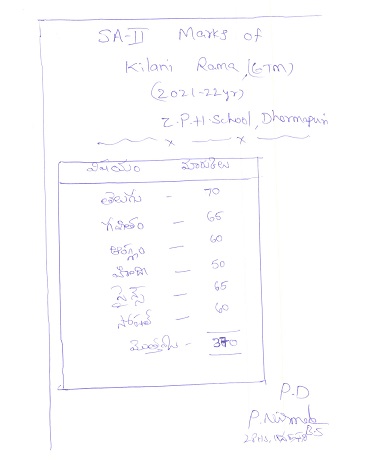 SA-II Marks of
Kilani Rama, (6TM)
(2021-22yr)
Z.P.H.School, Dharmapuri
విషయం మార్కులు
తెలుగు - 70
గణితం - 65
ఆంగ్లం - 60
హిందీ - 50
సైన్స్ - 65
సోషల్ - 60
మొత్తం - 370
P.D